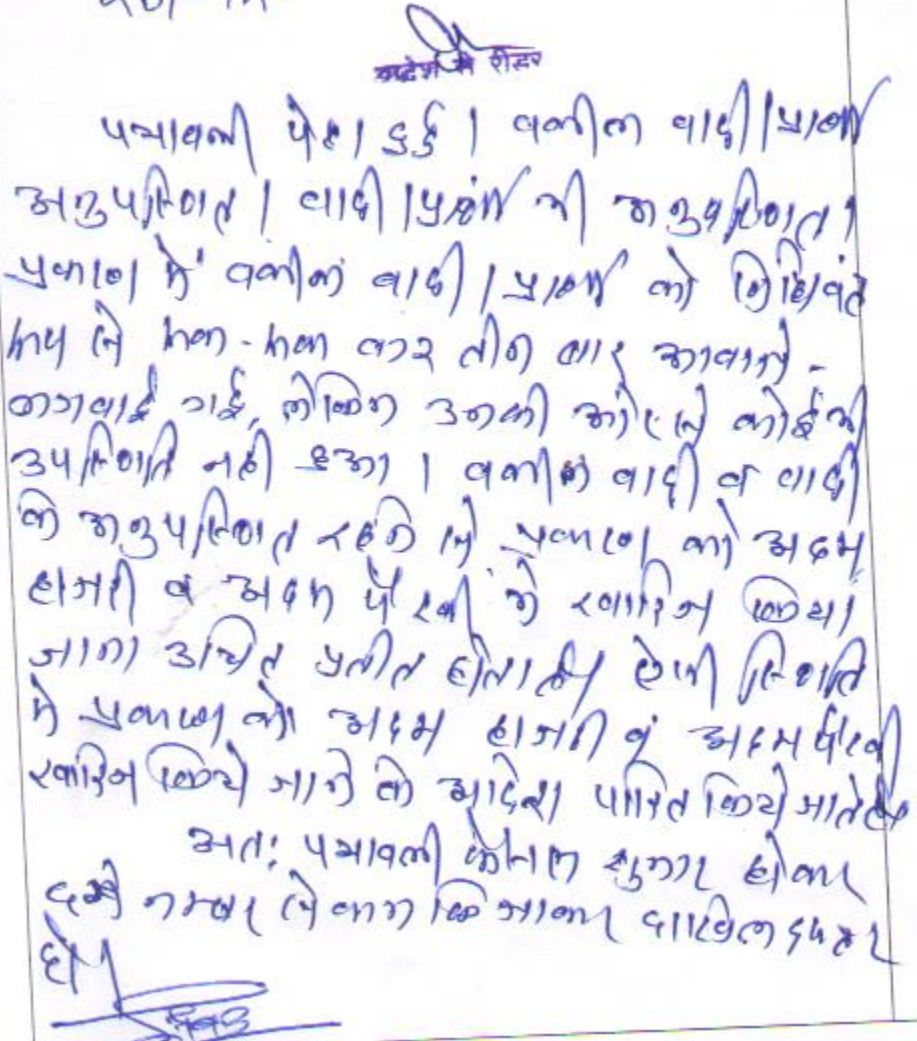 आदेश से रीडर
पत्रावली पेश हुई । वकील वादी/प्रार्थी
अनुपस्थित । वादी/प्रार्थी भी अनुपस्थित।
प्रकरण में वकील वादी/प्रार्थी को विधिवत
रूप से रूक-रूक कर तीन बार आवाजे
लगवाई गई, लेकिन उनकी ओर से कोई भी
उपस्थित नही हुआ । वकील वादी व वादी
के अनुपस्थित रहने से प्रकरण को अदम
हाजरी व अदम पैरवी मे खारिज किया
जाना उचित प्रतीत होता है। ऐसी स्थिति
मे प्रकरण को अदम हाजरी व अदम पैरवी
खारिज किये जाने के आदेश पारित किये जाते है।
अतः पत्रावली फैसल शुमार होकर
दर्ज नम्बर से कम कि जाकर दाखिल दफ्तर
हो।